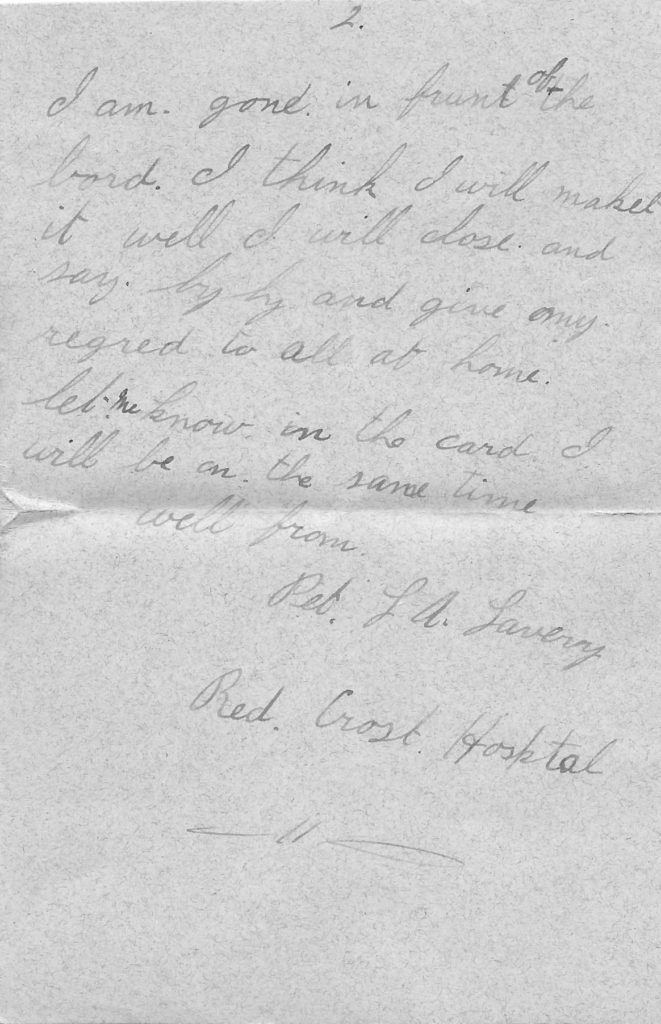 2.
I am. gone. in frunt of the
bord. I think I will maket
it well I will close. and
say. by by and give my.
regred to all at home.
let. me know in the card I
will be on. the same time
well from.
Pet. L A. Lavery
Red. Crost. Hosktal